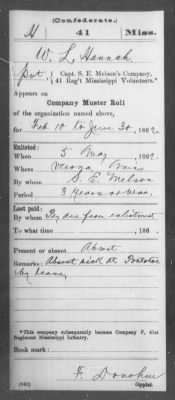 (Confederate.)
H 41 Miss.
W. L. Hannah
Pvt., Capt. S. E. Melson's Company,
41 Reg't Mississippi Volunteers.*
Appears on
Company Muster Roll
of the organization named above,
for Feb 10 to June 30, 1862.
Enlisted:
When 5 May, 1862.
Where Verona Miss
By whom S. E. Melson
Period 3 years or war
Last paid:
By whom Pay due from enlistment
To what time , 186 .
Present or absent Absent
Remarks: Absent sick at Pontotoc
by leave,
*This company subsequently became Company F, 41st
Regiment Mississippi Infantry.
Book mark:
F. Donohue
(642) Copyist.